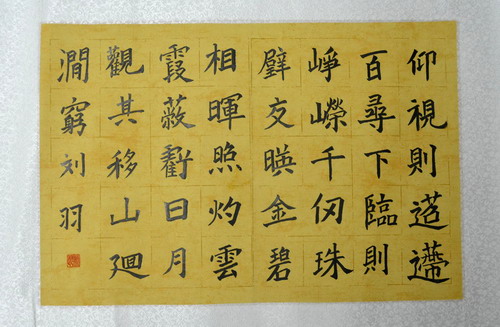 仰視則迢遰
百尋下臨則
崢嶸千仞珠
璧交暎金碧
相暉照灼雲
霞蔽虧日月
觀其移山廻
澗窮刘羽